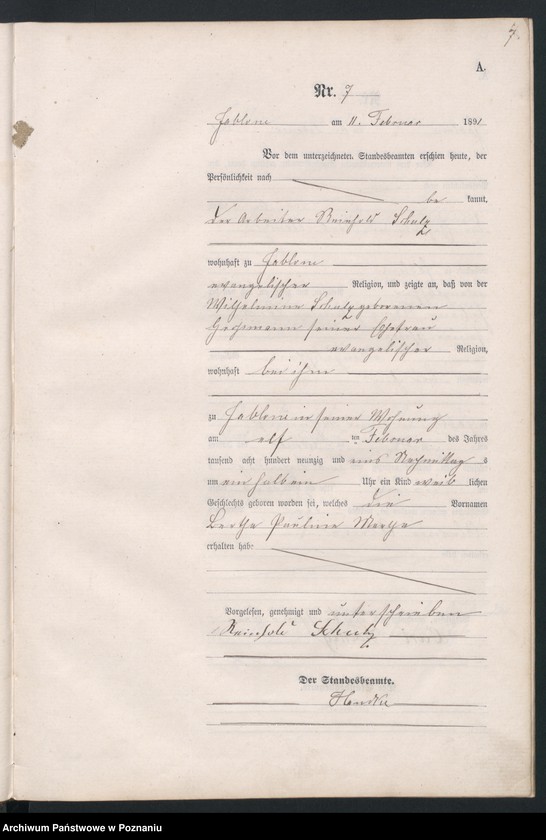 7.
A.
Nr. 7
Jablone am 11. Februar 1891
Vor dem unterzeichneten Standesbeamten erschien heute, der
Persönlichkeit nach
be kannt,
der Arbeiter Reinhold Schulz
wohnhaft zu Jablone
evangelischer Religion, und zeigte an, daß von der
Wilhelmine Schulz geborenen
seiner Ehefrau
evangelischer Religion,
wohnhaft bei ihm
zu Jablone in seiner Wohnung
am elf ten Februar des Jahres
tausend acht hundert neunzig und eins Nachmittag s
um ein halb ein Uhr ein Kind weib lichen
Geschlechts geboren worden sei, welches die Vornamen
Bertha Pauline Martha
erhalten habe
Vorgelesen, genehmigt und unterschrieben
Reinhold Schulz
Der Standesbeamte.
Archiwum Państwowe w Poznaniu